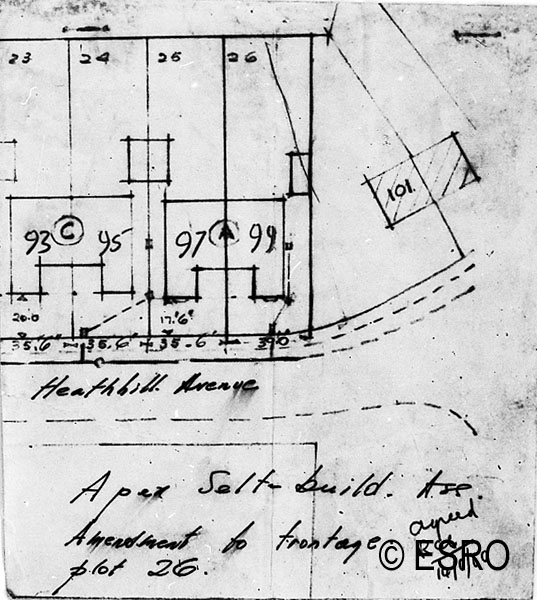 23 24 25 26
101.
93 C 95 97 A 99
20.0 17'.6"
35'.6" 35'.6" 35'-6' 39.0
Heathhill. Avenue
Apex Self-build. Ass.
Amendment to frontage
plot 26.
agreed
© ESRO